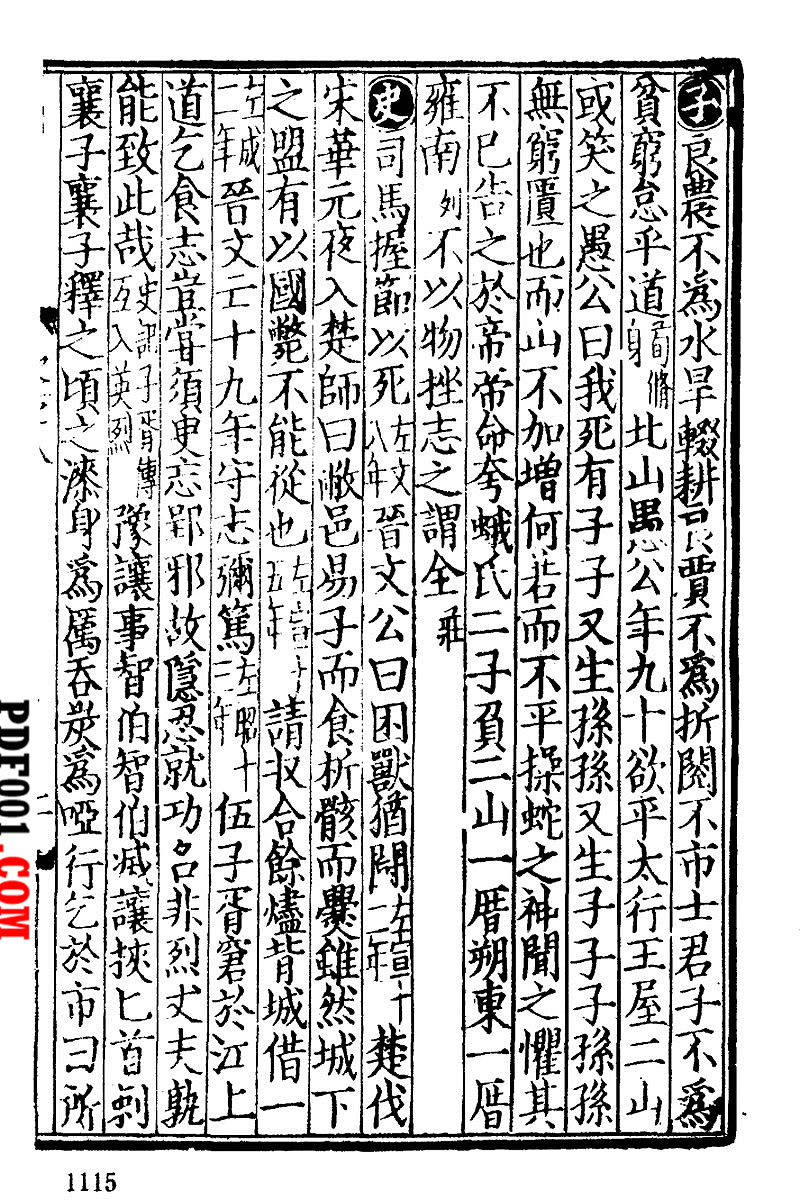 子良農不為水旱輟耕良賈不為折閱不市士君子不為
貧窮怠乎道荀脩身北山愚公年九十欲平太行王屋二山
或笑之愚公曰我死有子子又生孫孫又生子子子孫孫
無窮匱也而山不加增何若而不平操蛇之神聞之懼其
不已告之於帝帝命夸蛾氏二子負二山一厝朔東一厝
雍南列不以物挫志之謂全莊
史司馬握節以死左文八年晉文公曰困獸猶鬪左宣十二年楚伐
宋華元夜入楚師曰敝邑易子而食析骸而爨雖然城下
之盟有以國斃不能從也左宣十五年請收合餘燼背城借一
左成二年晉文亡十九年守志彌篤左昭十三年伍子胥窘於江上
道乞食志豈嘗須臾忘郢邪故隱忍就功名非烈丈夫孰
能致此哉史記子胥傳互入英烈豫讓事智伯智伯滅讓挾匕首刺
襄子襄子釋之頃之漆身為厲吞炭為啞行乞於市曰所
1115
PDF001.COM